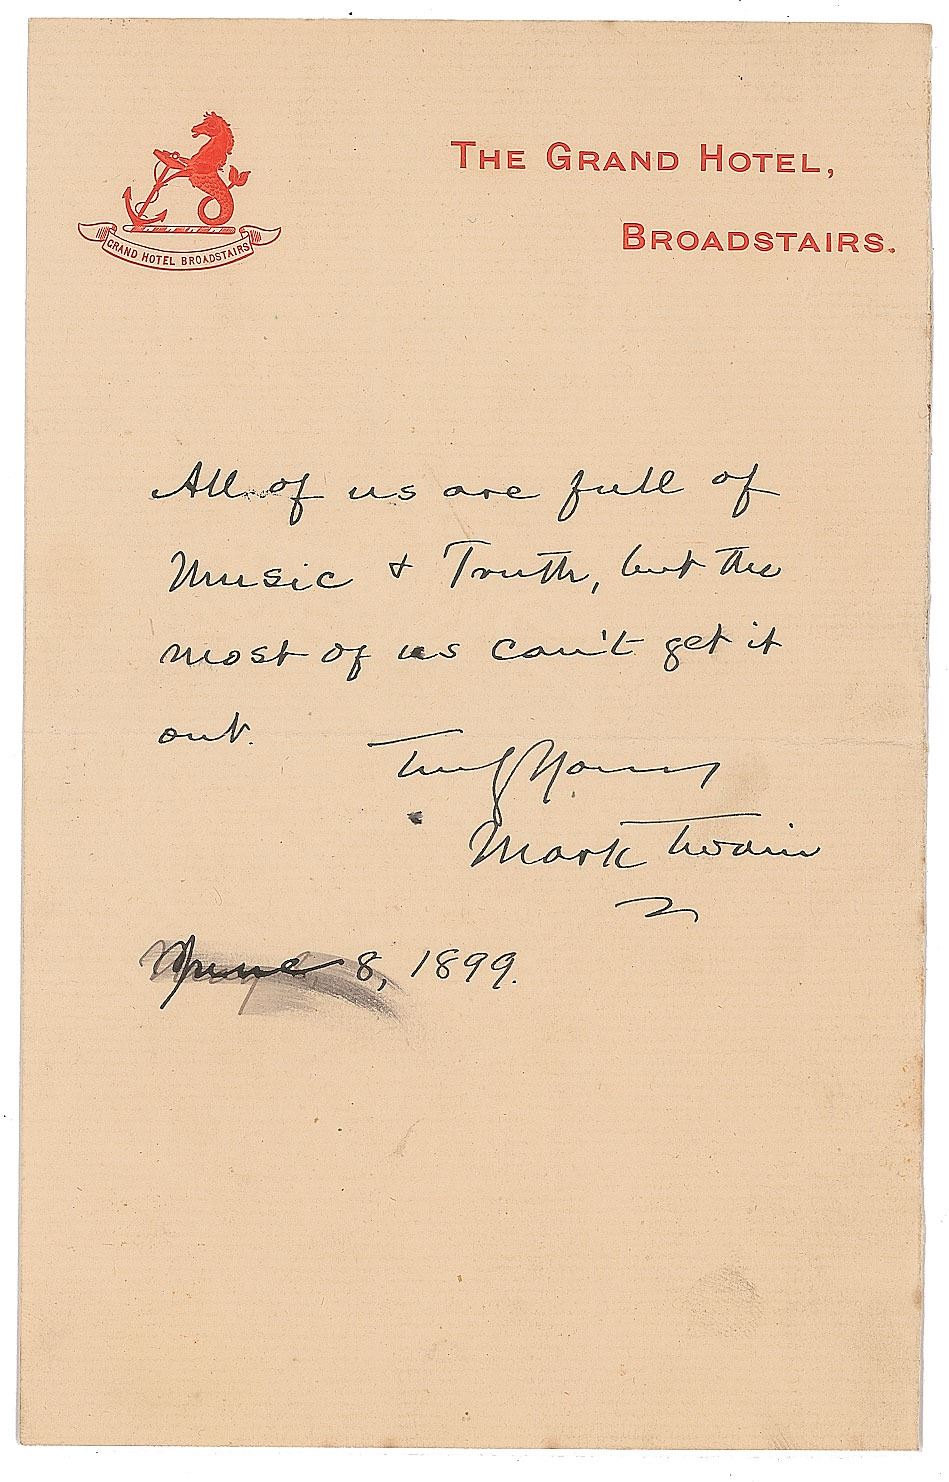 GRAND HOTEL BROADSTAIRS
THE GRAND HOTEL,
BROADSTAIRS.
All of us are full of
Music & Truth, but the
most of us can't get it
out.
Truly Yours
Mark Twain
June 8, 1899.